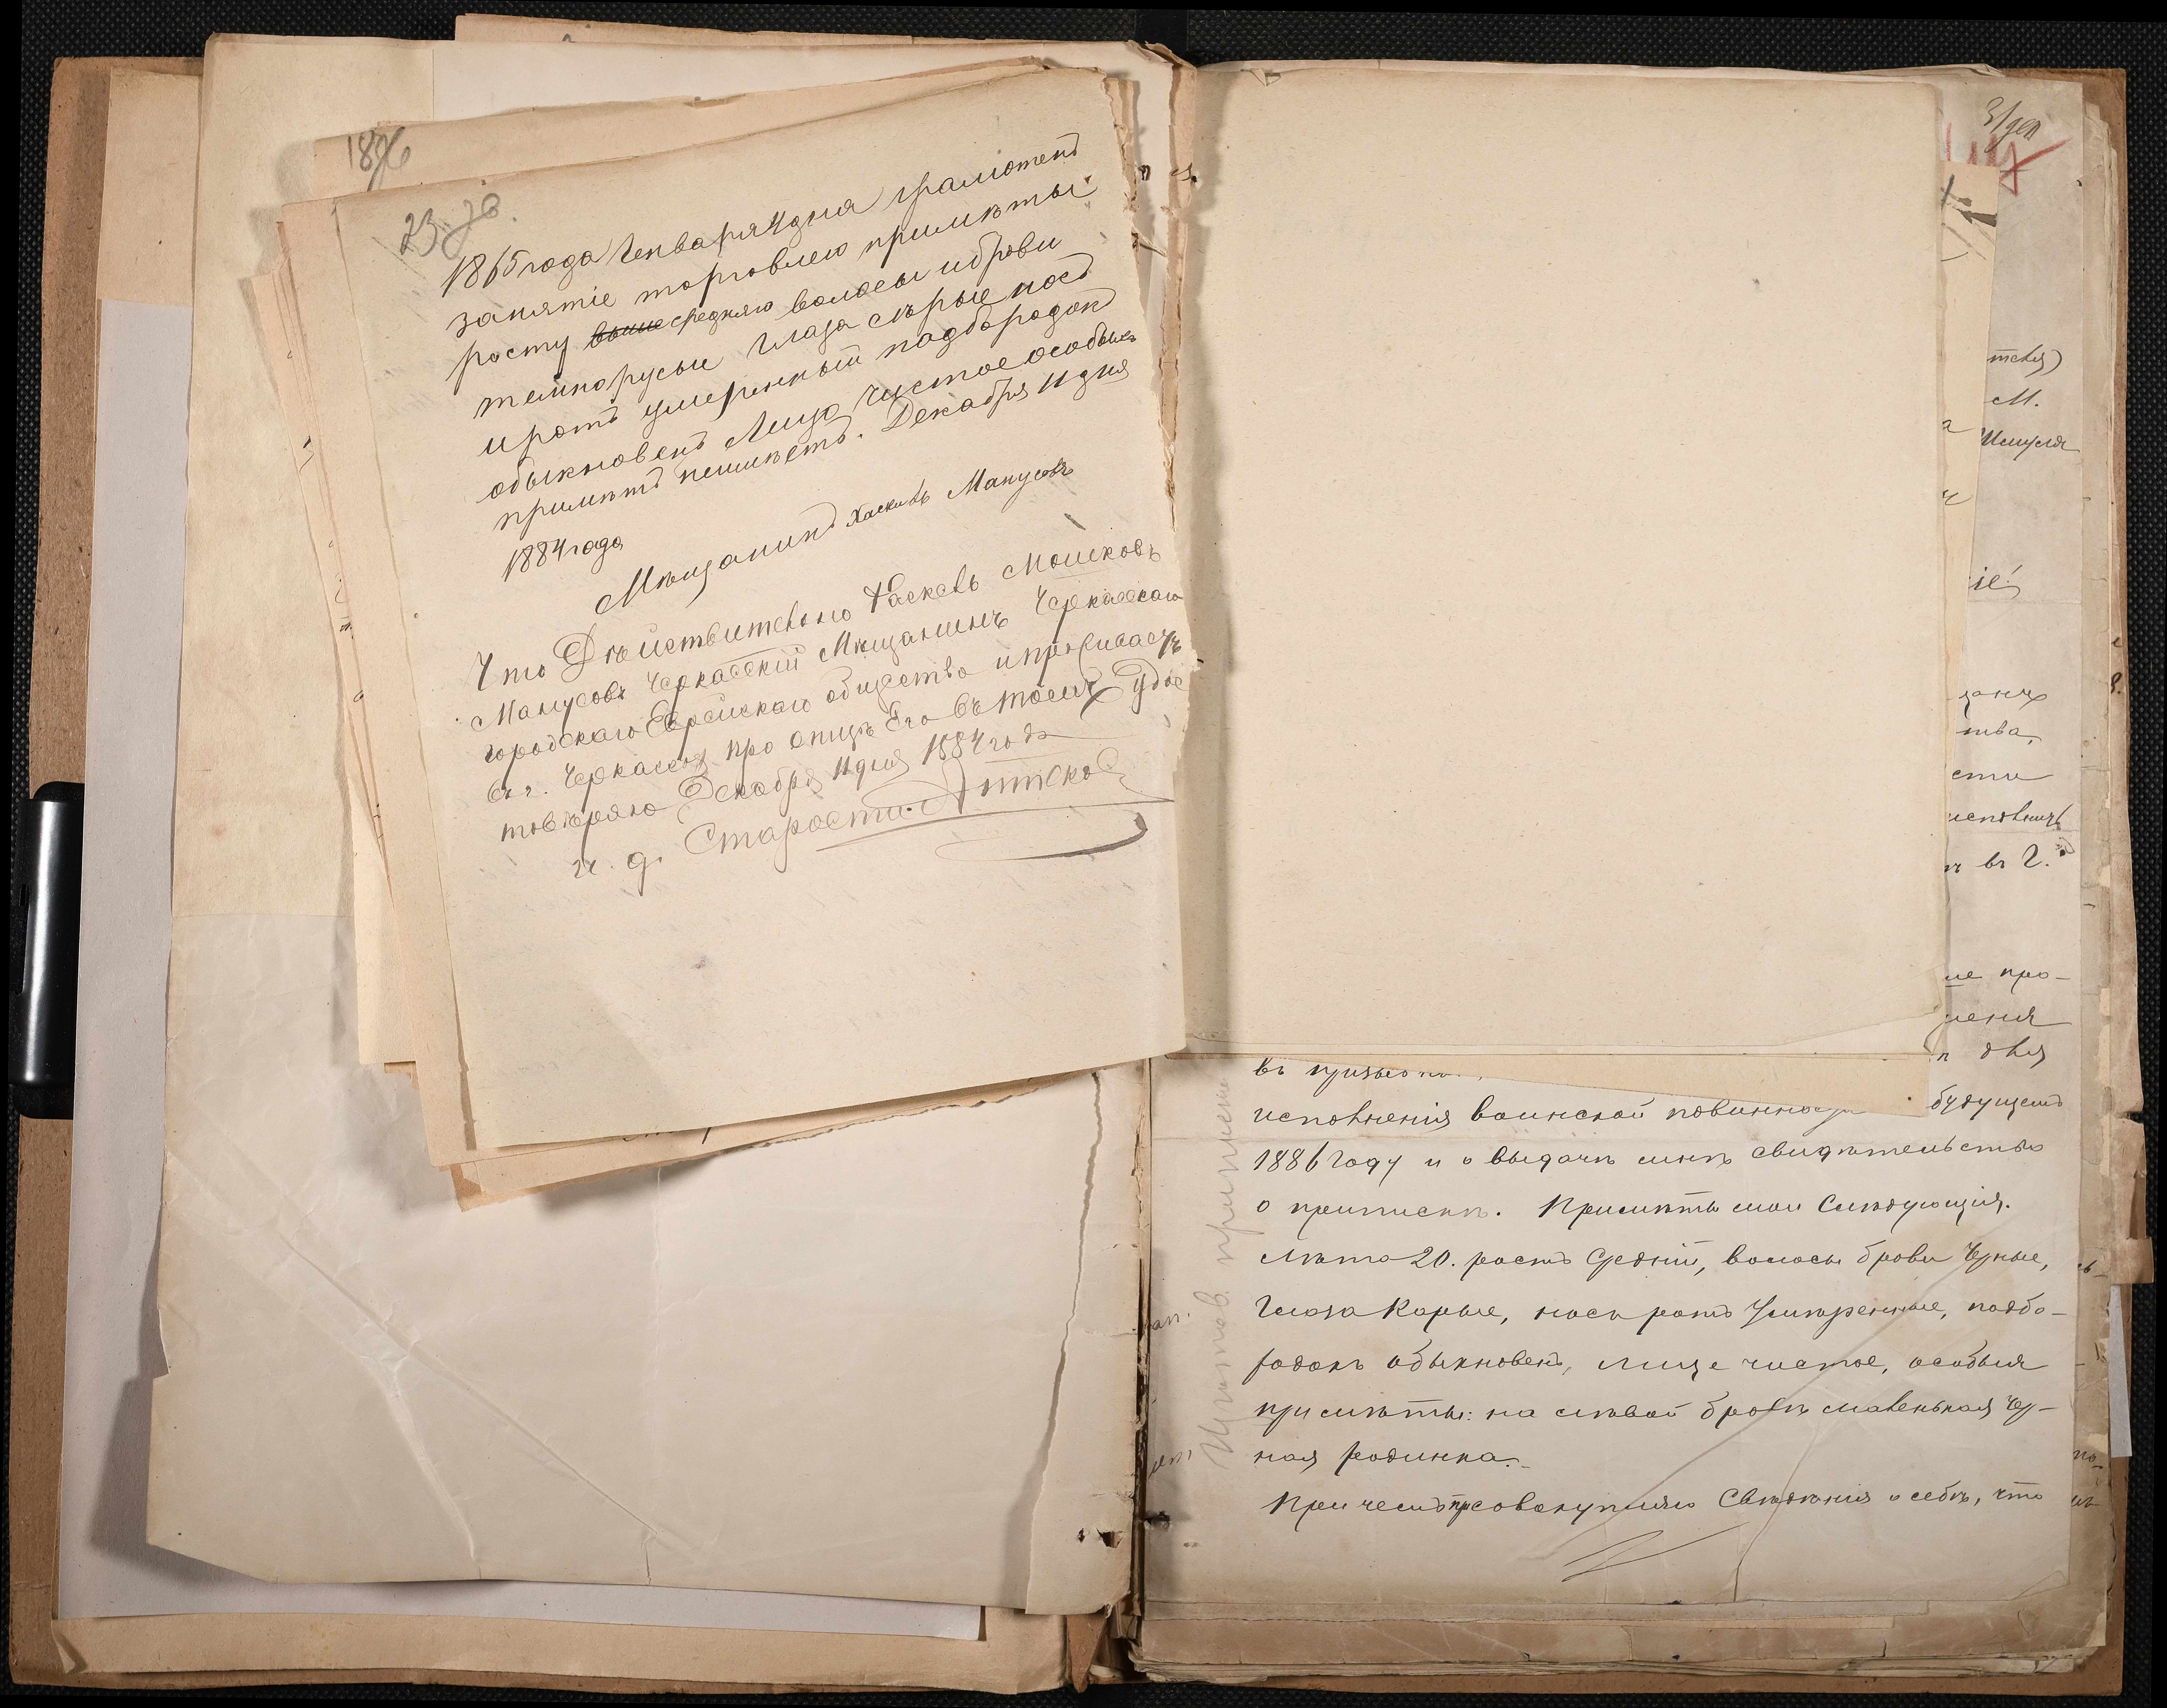 1876
23 ген.
1865 года Генваря 4 дня грамотенъ
занятіе торговлею примѣты
росту выше средняго волосы и брови
темнорусыи глаза сѣрые носъ
и ротъ умеренный падбородок
обыкновенъ Лицо чистое особыхъ
примѣтъ неимѣетъ. Декабря 11 дня
1884 года
Мѣщанинъ Хаскель Манусовъ
Что Дѣйствительно Хаскель Мошковъ
Манусовъ Черкасскій Мѣщанинъ Черкасскаго
городскаго Еврейскаго общества и проживаетъ
въ г. Черкассах про опицъ Его въ томъ Удос
товѣряю Декабря 11 дня 1884 года
и. д. Старости
тства)
М.
Шмуля
іе
занъ
тва,
сти
исполнить
въ г.
ие про-
ленія
для
въ призывно
исполненія воинской повинности будущемъ
1886 году и о выдачѣ мнѣ свидѣтельства
о припискѣ. Примѣты мои Слѣдующія.
Лѣта 20. ростъ Средній, волосы брови Черные,
Глаза Карые, носъ ротъ Умѣренные, подбо-
родокъ обыкновенъ, лице чистое, особыя
примѣты: на лѣвой бровѣ маленькая Чер-
ная родинка.
При чемъ присовокупляю Свѣденія о себѣ, что